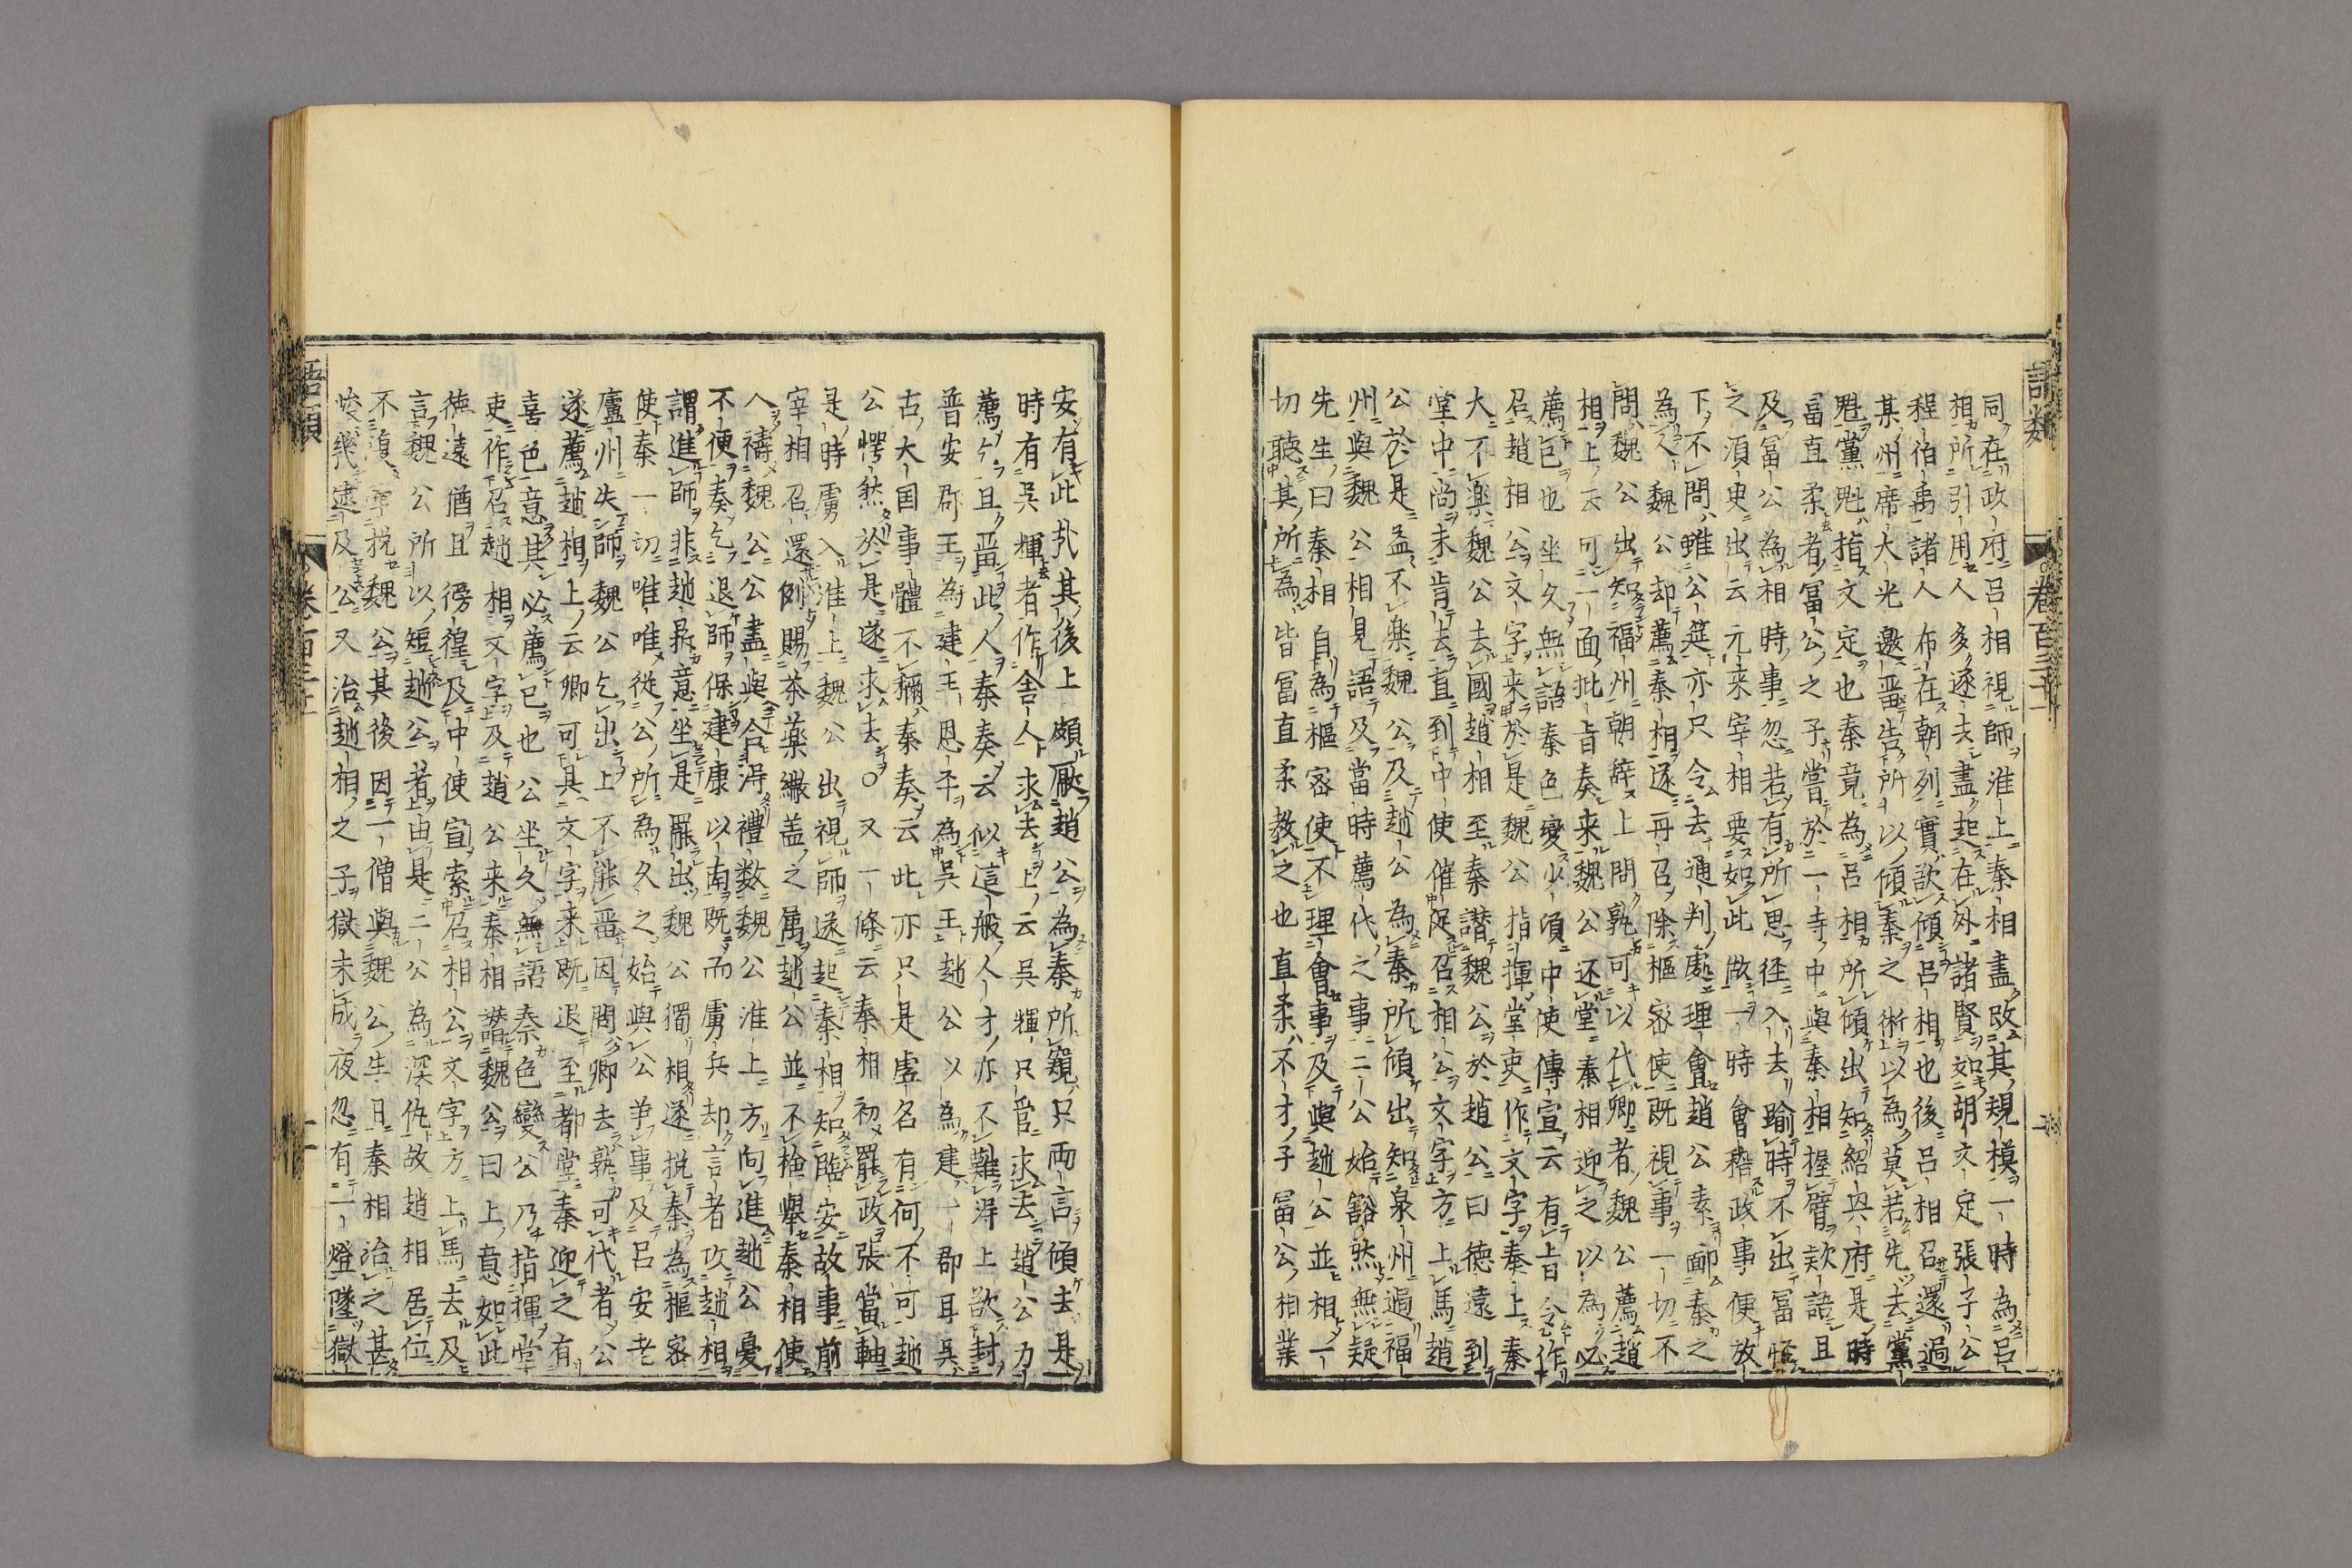 語類 卷百三十一
同在政府呂相視師淮上秦相盡改其規模一時為呂
相所引用人多逐去盡起在外諸賢如胡文定張子公
程伯禹諸人布在朝列實欲傾呂相也後呂相召還過
某州席大光邀畱告所以傾秦之術以為莫若先去黨
魁黨魁指文定也秦竟為呂相所傾出知紹興府是時
冨直柔者冨公之子嘗於一寺中與秦相握臂欵語且
及冨公為相時事忽若有所思径入去踰時不出冨恠
之湏臾出云元来宰相要如此做一時會稽政事便放
下不問雖公筵亦只令去通判處理會趙公素鄙秦之
為人魏公却薦秦相遂再召除樞密使既視事一切不
問魏公出知福州朝辞上問孰可以代卿者魏公薦趙
相上云可一面批旨奏来魏公还堂秦相迎之以為必
薦已也坐久無語秦色變少頃中使傳宣云有上旨令作
召趙相公文字来於是魏公指揮堂吏作文字奏上秦
大不楽魏公去國趙相至秦譖魏公於趙公曰徳遠到
堂中尚未肯去直到中使催促召相公文字方上馬趙
公於是益不楽魏公及趙公為秦所傾出知泉州過福
州與魏公相見語及當時薦代之事二公始豁然無疑
先生曰秦相自為樞密使不理會事及與趙公並相一
切聽其所為皆冨直柔教之也直柔不才子冨公相業
安有此扎其後上頗厭趙公為秦所窺只両言傾去是
時有吳輝者作舎人求去上云吳輝只管求去趙公力
薦乞且畱此人秦奏云似這般人才亦不難得上欲封
普安郡王為建王恩平為吳王趙公以為建一郡耳吳
古大国事體不稱秦奏云此亦只是虚名有何不可趙
公愕然於是遂求去○又一條云秦相初罷政張當軸
是時虜入淮上魏公出視師遂起秦相知臨安故事前
宰相召還例賜茶藥繖盖之属趙公並不檢舉秦相使
人禱魏公公盡與合得禮数魏公淮上方向進趙公憂
不便奏乞退師保建康以南既而虜兵却言者攻趙相
謂進師非趙鼎意坐是罷出魏公獨相遂挽秦為樞密
使秦一切唯唯從公所為久之始與公爭事及呂安老
廬州失師魏公乞出上不能畱因問卿去孰可代者公
遂薦趙相上云卿可具文字来既退至都堂秦迎之有
喜色意其必薦已也公坐久無語秦色變公乃指揮堂
吏作召趙相文字及趙公来秦相譛魏公曰上意如此
徳遠猶且徬徨及中使宣索召相公文字方上馬去及
言魏公所以短趙公者由是二公為深仇故趙相居位
不湏牽挽魏公其後因一僧與魏公生日秦相治之甚
幾逮及公又治趙相之子獄未成夜忽有一燈墜獄
語類 卷百三十一